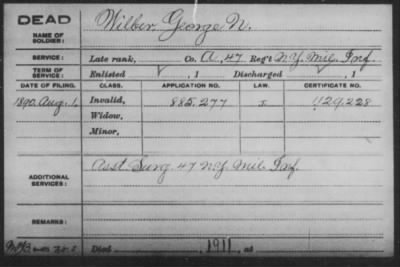 DEAD
NAME OF
SOLDIER:
Wilber George N.
SERVICE:
Late rank, Co. A, 47 Reg't N.Y. Mil. Inf.
TERM OF
SERVICE:
Enlisted , 1 Discharged , 1
DATE OF FILING. CLASS. APPLICATION NO. LAW. CERTIFICATE NO.
1890. Aug. 1, Invalid, 885.277 I 429.228
Widow,
Minor,
ADDITIONAL
SERVICES:
Asst. Surg. 47 N.Y. Mil. Inf.
REMARKS:
Died 1911, at